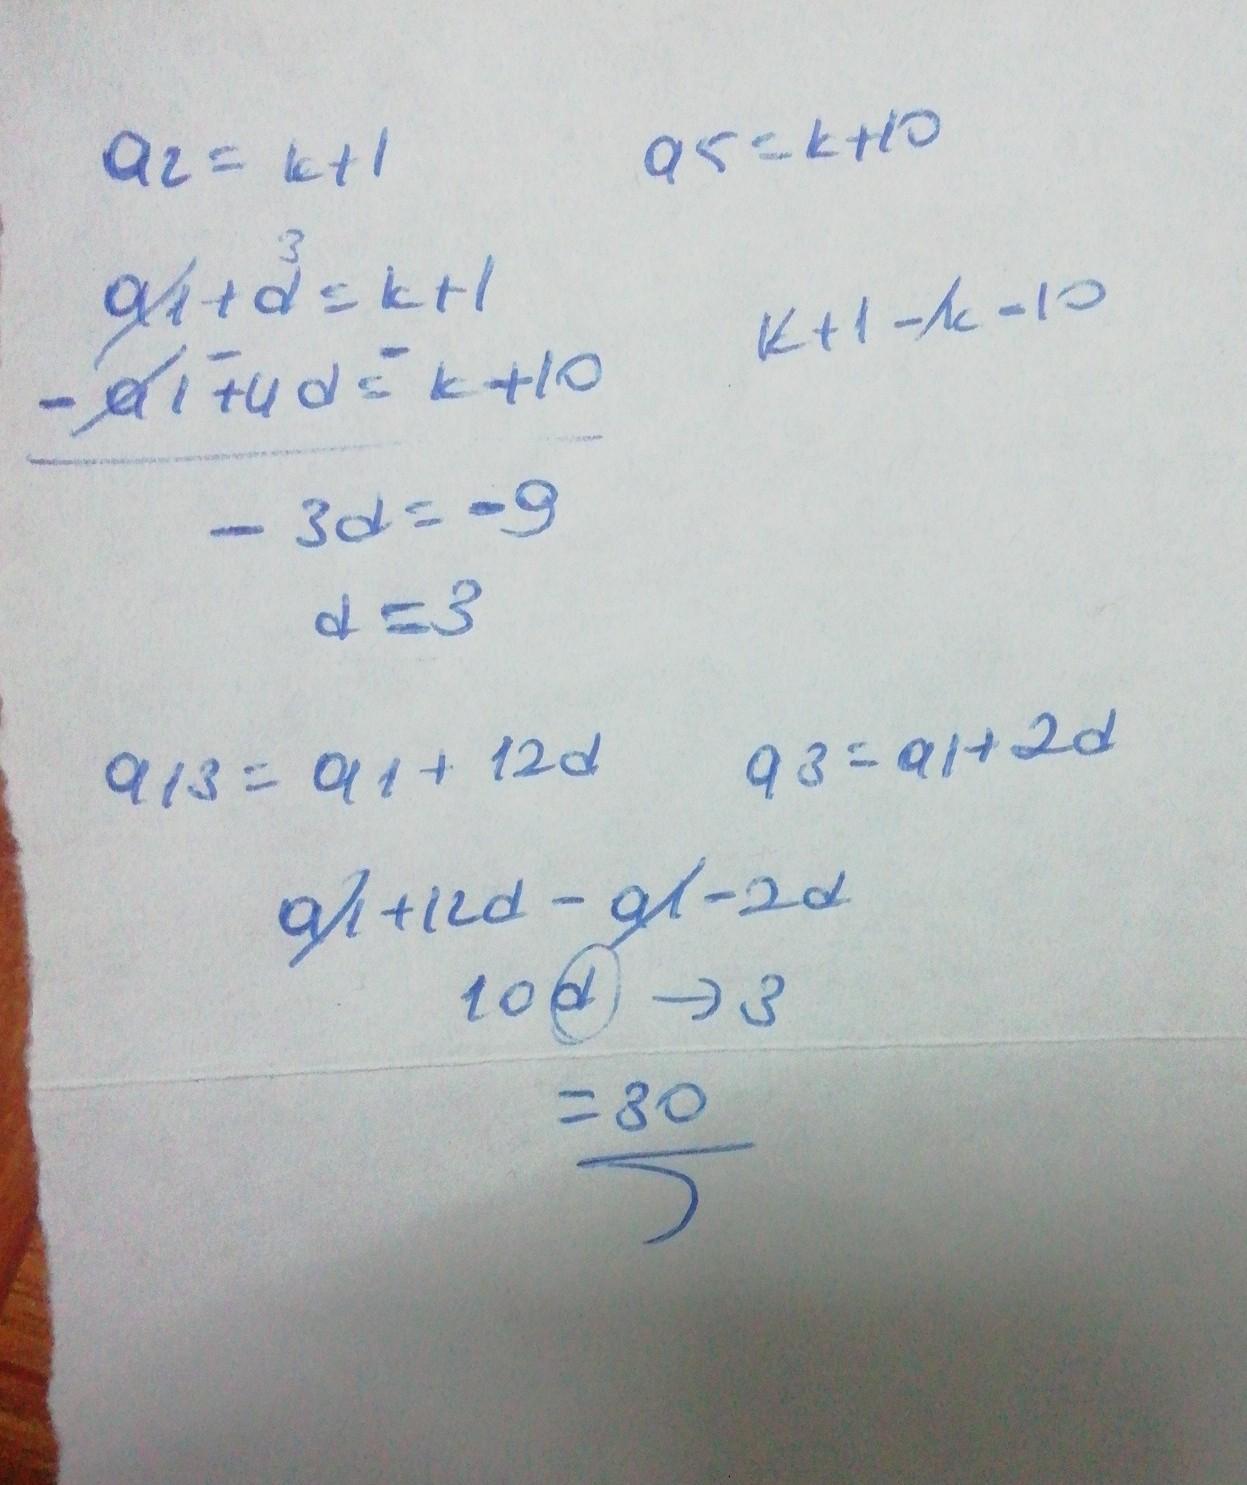 a2 = k+1 a5 = k+10
3
a1 + d = k+1
k+1-k-10
- a1 + 4d = k+10
- -
- 3d = -9
d = 3
a13 = a1 + 12d a3 = a1 + 2d
a1 + 12d - a1 - 2d
10d → 3
= 30